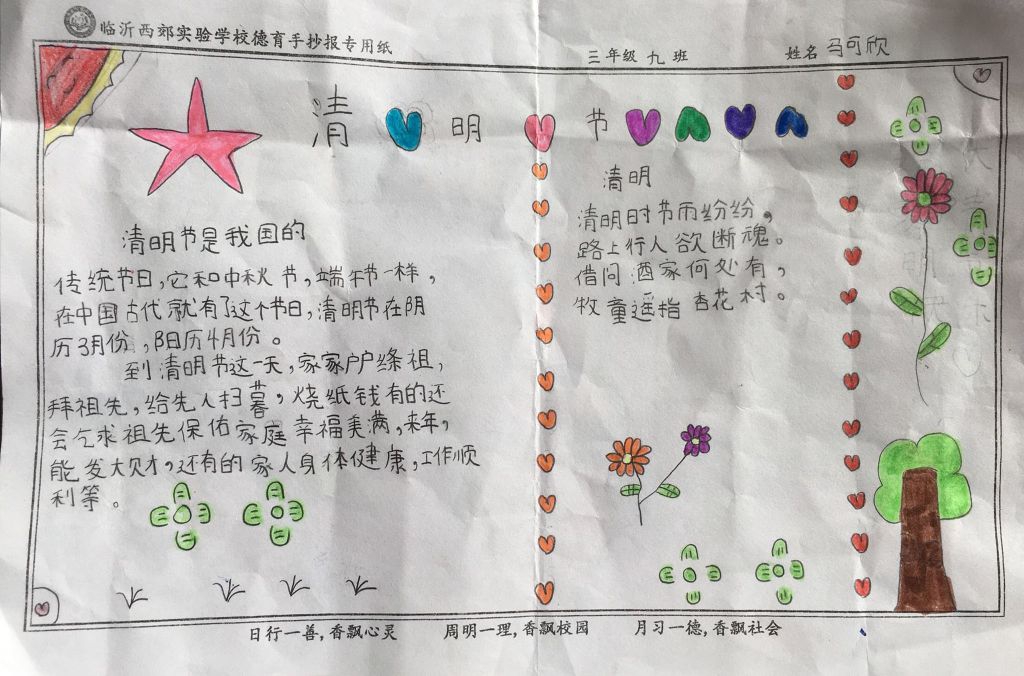 临沂西郊实验学校德育手抄报专用纸
三年级 九 班
姓名 马可欣
清明节
清明节是我国的
传统节日,它和中秋节,端午节一样,
在中国古代就有了这个节日,清明节在阴
历3月份,阳历4月份。
到清明节这一天,家家户户缘祖,
拜祖先,给先人扫暮,烧纸钱有的还
会乞求祖先保佑家庭幸福美满,来年,
能发大财,还有的家人身体健康,工作顺
利等。
清明
清明时节雨纷纷,
路上行人欲断魂。
借问酒家何处有,
牧童遥指杏花村。
日行一善,香飘心灵 周明一理,香飘校园 月习一德,香飘社会